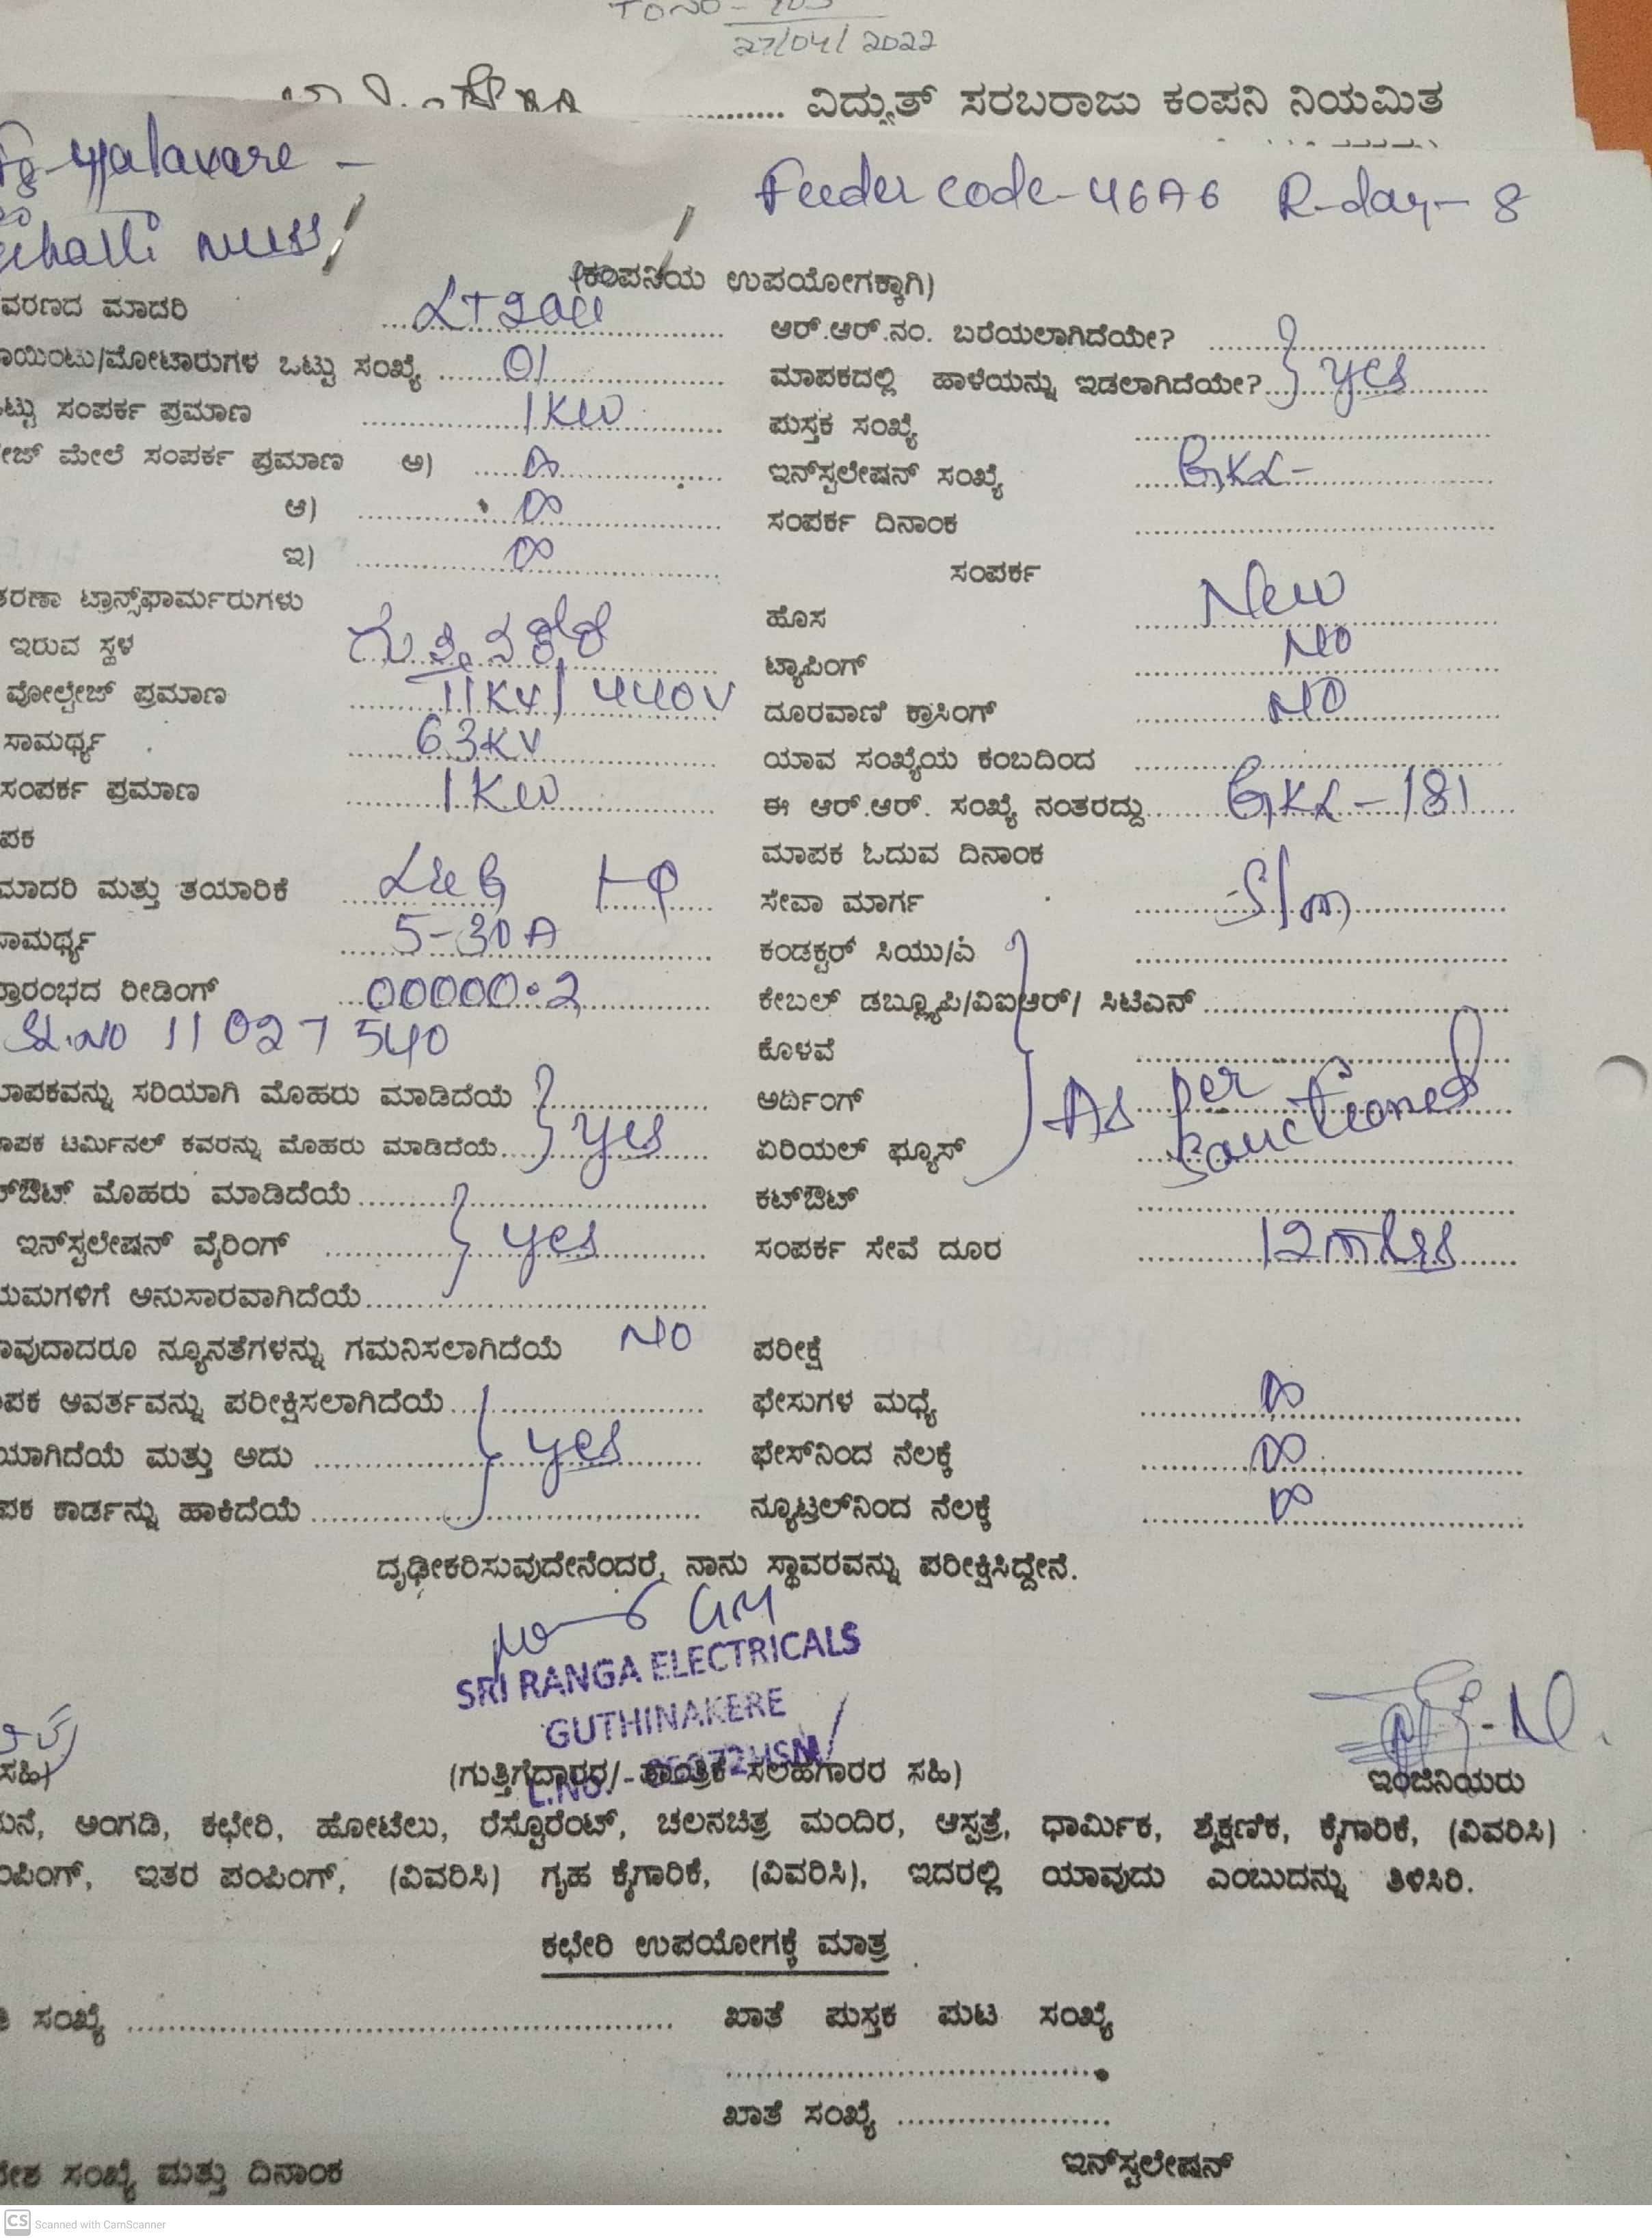 27/04/2022
ವಿದ್ಯುತ್ ಸರಬರಾಜು ಕಂಪನಿ ನಿಯಮಿತ
Feeder code-46A6 R-day-8
(ಕಂಪನಿಯ ಉಪಯೋಗಕ್ಕಾಗಿ)
ವರಣದ ಮಾದರಿ
ಆರ್.ಆರ್.ನಂ. ಬರೆಯಲಾಗಿದೆಯೇ?
ಾಯಿಂಟು/ಮೋಟಾರುಗಳ ಒಟ್ಟು ಸಂಖ್ಯೆ 01
ಮಾಪಕದಲ್ಲಿ ಹಾಳೆಯನ್ನು ಇಡಲಾಗಿದೆಯೇ? yes
ಟ್ಟು ಸಂಪರ್ಕ ಪ್ರಮಾಣ 1KW
ಪುಸ್ತಕ ಸಂಖ್ಯೆ
ೇಜ್ ಮೇಲೆ ಸಂಪರ್ಕ ಪ್ರಮಾಣ ಅ) ∞
ಇನ್‌ಸ್ಟಲೇಷನ್ ಸಂಖ್ಯೆ GKL-
ಆ) ∞
ಸಂಪರ್ಕ ದಿನಾಂಕ
ಇ) ∞
ಸಂಪರ್ಕ
ತರಣಾ ಟ್ರಾನ್ಸ್‌ಫಾರ್ಮರುಗಳು
ಹೊಸ New
ಇರುವ ಸ್ಥಳ
ಟ್ಯಾಪಿಂಗ್ NO
ವೋಲ್ಟೇಜ್ ಪ್ರಮಾಣ 11KV/440V
ದೂರವಾಣಿ ಕ್ರಾಸಿಂಗ್ NO
ಸಾಮರ್ಥ್ಯ 63KV
ಯಾವ ಸಂಖ್ಯೆಯ ಕಂಬದಿಂದ
ಸಂಪರ್ಕ ಪ್ರಮಾಣ 1KW
ಈ ಆರ್.ಆರ್. ಸಂಖ್ಯೆ ನಂತರದ್ದು GKL-181
ಪಕ
ಮಾಪಕ ಓದುವ ದಿನಾಂಕ
ಮಾದರಿ ಮತ್ತು ತಯಾರಿಕೆ L&G 1-φ
ಸೇವಾ ಮಾರ್ಗ S/m
ಸಾಮರ್ಥ್ಯ 5-30A
ಕಂಡಕ್ಟರ್ ಸಿಯು/ಎ
ಪ್ರಾರಂಭದ ರೀಡಿಂಗ್ 00000.2
ಕೇಬಲ್ ಡಬ್ಲ್ಯೂಪಿ/ವಿಐಆರ್/ ಸಿಟಿಎನ್
SL.NO 11027540
ಕೊಳವೆ
ಮಾಪಕವನ್ನು ಸರಿಯಾಗಿ ಮೊಹರು ಮಾಡಿದೆಯೆ
ಅರ್ದಿಂಗ್ As per
ಾಪಕ ಟರ್ಮಿನಲ್ ಕವರನ್ನು ಮೊಹರು ಮಾಡಿದೆಯೆ yes
ಏರಿಯಲ್ ಫ್ಯೂಸ್ sanctioned
ಟ್‌ಔಟ್ ಮೊಹರು ಮಾಡಿದೆಯೆ
ಕಟ್‌ಔಟ್
ಇನ್‌ಸ್ಟಲೇಷನ್ ವೈರಿಂಗ್ yes
ಸಂಪರ್ಕ ಸೇವೆ ದೂರ 12mtrs
ಯಮಗಳಿಗೆ ಅನುಸಾರವಾಗಿದೆಯೆ
ಾವುದಾದರೂ ನ್ಯೂನತೆಗಳನ್ನು ಗಮನಿಸಲಾಗಿದೆಯೆ NO
ಪರೀಕ್ಷೆ
ಪಕ ಆವರ್ತವನ್ನು ಪರೀಕ್ಷಿಸಲಾಗಿದೆಯೆ
ಫೇಸುಗಳ ಮಧ್ಯೆ ∞
ಯಾಗಿದೆಯೆ ಮತ್ತು ಅದು yes
ಫೇಸ್‌ನಿಂದ ನೆಲಕ್ಕೆ ∞
ಪಕ ಕಾರ್ಡನ್ನು ಹಾಕಿದೆಯೆ
ನ್ಯೂಟ್ರಲ್‌ನಿಂದ ನೆಲಕ್ಕೆ ∞
ದೃಢೀಕರಿಸುವುದೇನೆಂದರೆ, ನಾನು ಸ್ಥಾವರವನ್ನು ಪರೀಕ್ಷಿಸಿದ್ದೇನೆ.
SRI RANGA ELECTRICALS
GUTHINAKERE
L.NO.
ಸಹಿ)
(ಗುತ್ತಿಗೆದಾರರ/ ತಾಂತ್ರಿಕ ಸಲಹೆಗಾರರ ಸಹಿ)
ಇಂಜಿನಿಯರು
ಮನೆ, ಅಂಗಡಿ, ಕಛೇರಿ, ಹೋಟೆಲು, ರೆಸ್ಟೊರೆಂಟ್, ಚಲನಚಿತ್ರ ಮಂದಿರ, ಆಸ್ಪತ್ರೆ, ಧಾರ್ಮಿಕ, ಶೈಕ್ಷಣಿಕ, ಕೈಗಾರಿಕೆ, (ವಿವರಿಸಿ)
ಂಪಿಂಗ್, ಇತರ ಪಂಪಿಂಗ್, (ವಿವರಿಸಿ) ಗೃಹ ಕೈಗಾರಿಕೆ, (ವಿವರಿಸಿ), ಇದರಲ್ಲಿ ಯಾವುದು ಎಂಬುದನ್ನು ತಿಳಿಸಿರಿ.
ಕಛೇರಿ ಉಪಯೋಗಕ್ಕೆ ಮಾತ್ರ
ಸಂಖ್ಯೆ
ಖಾತೆ ಪುಸ್ತಕ ಪುಟ ಸಂಖ್ಯೆ
ಖಾತೆ ಸಂಖ್ಯೆ
ೇಶ ಸಂಖ್ಯೆ ಮತ್ತು ದಿನಾಂಕ
ಇನ್‌ಸ್ಟಲೇಷನ್
CS Scanned with CamScanner